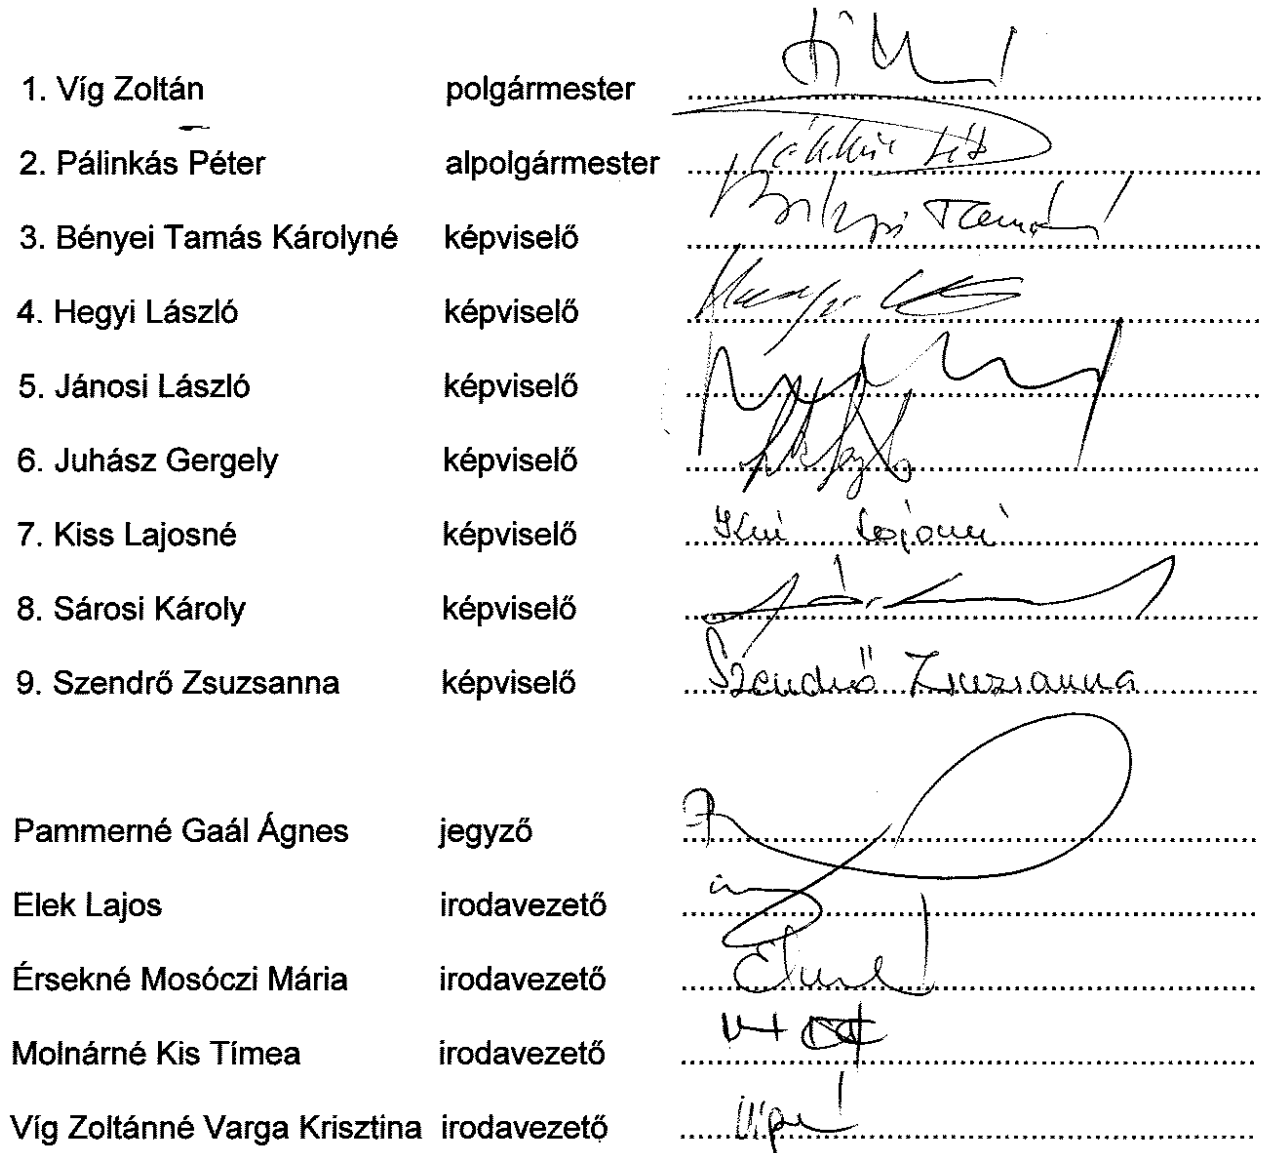 1. Víg Zoltán polgármester
2. Pálinkás Péter alpolgármester
3. Bényei Tamás Károlyné képviselő
4. Hegyi László képviselő
5. Jánosi László képviselő
6. Juhász Gergely képviselő
7. Kiss Lajosné képviselő Kiss Lajosné
8. Sárosi Károly képviselő
9. Szendrő Zsuzsanna képviselő Szendrő Zsuzsanna
Pammerné Gaál Ágnes jegyző
Elek Lajos irodavezető
Érsekné Mosóczi Mária irodavezető
Molnárné Kis Tímea irodavezető
Víg Zoltánné Varga Krisztina irodavezető